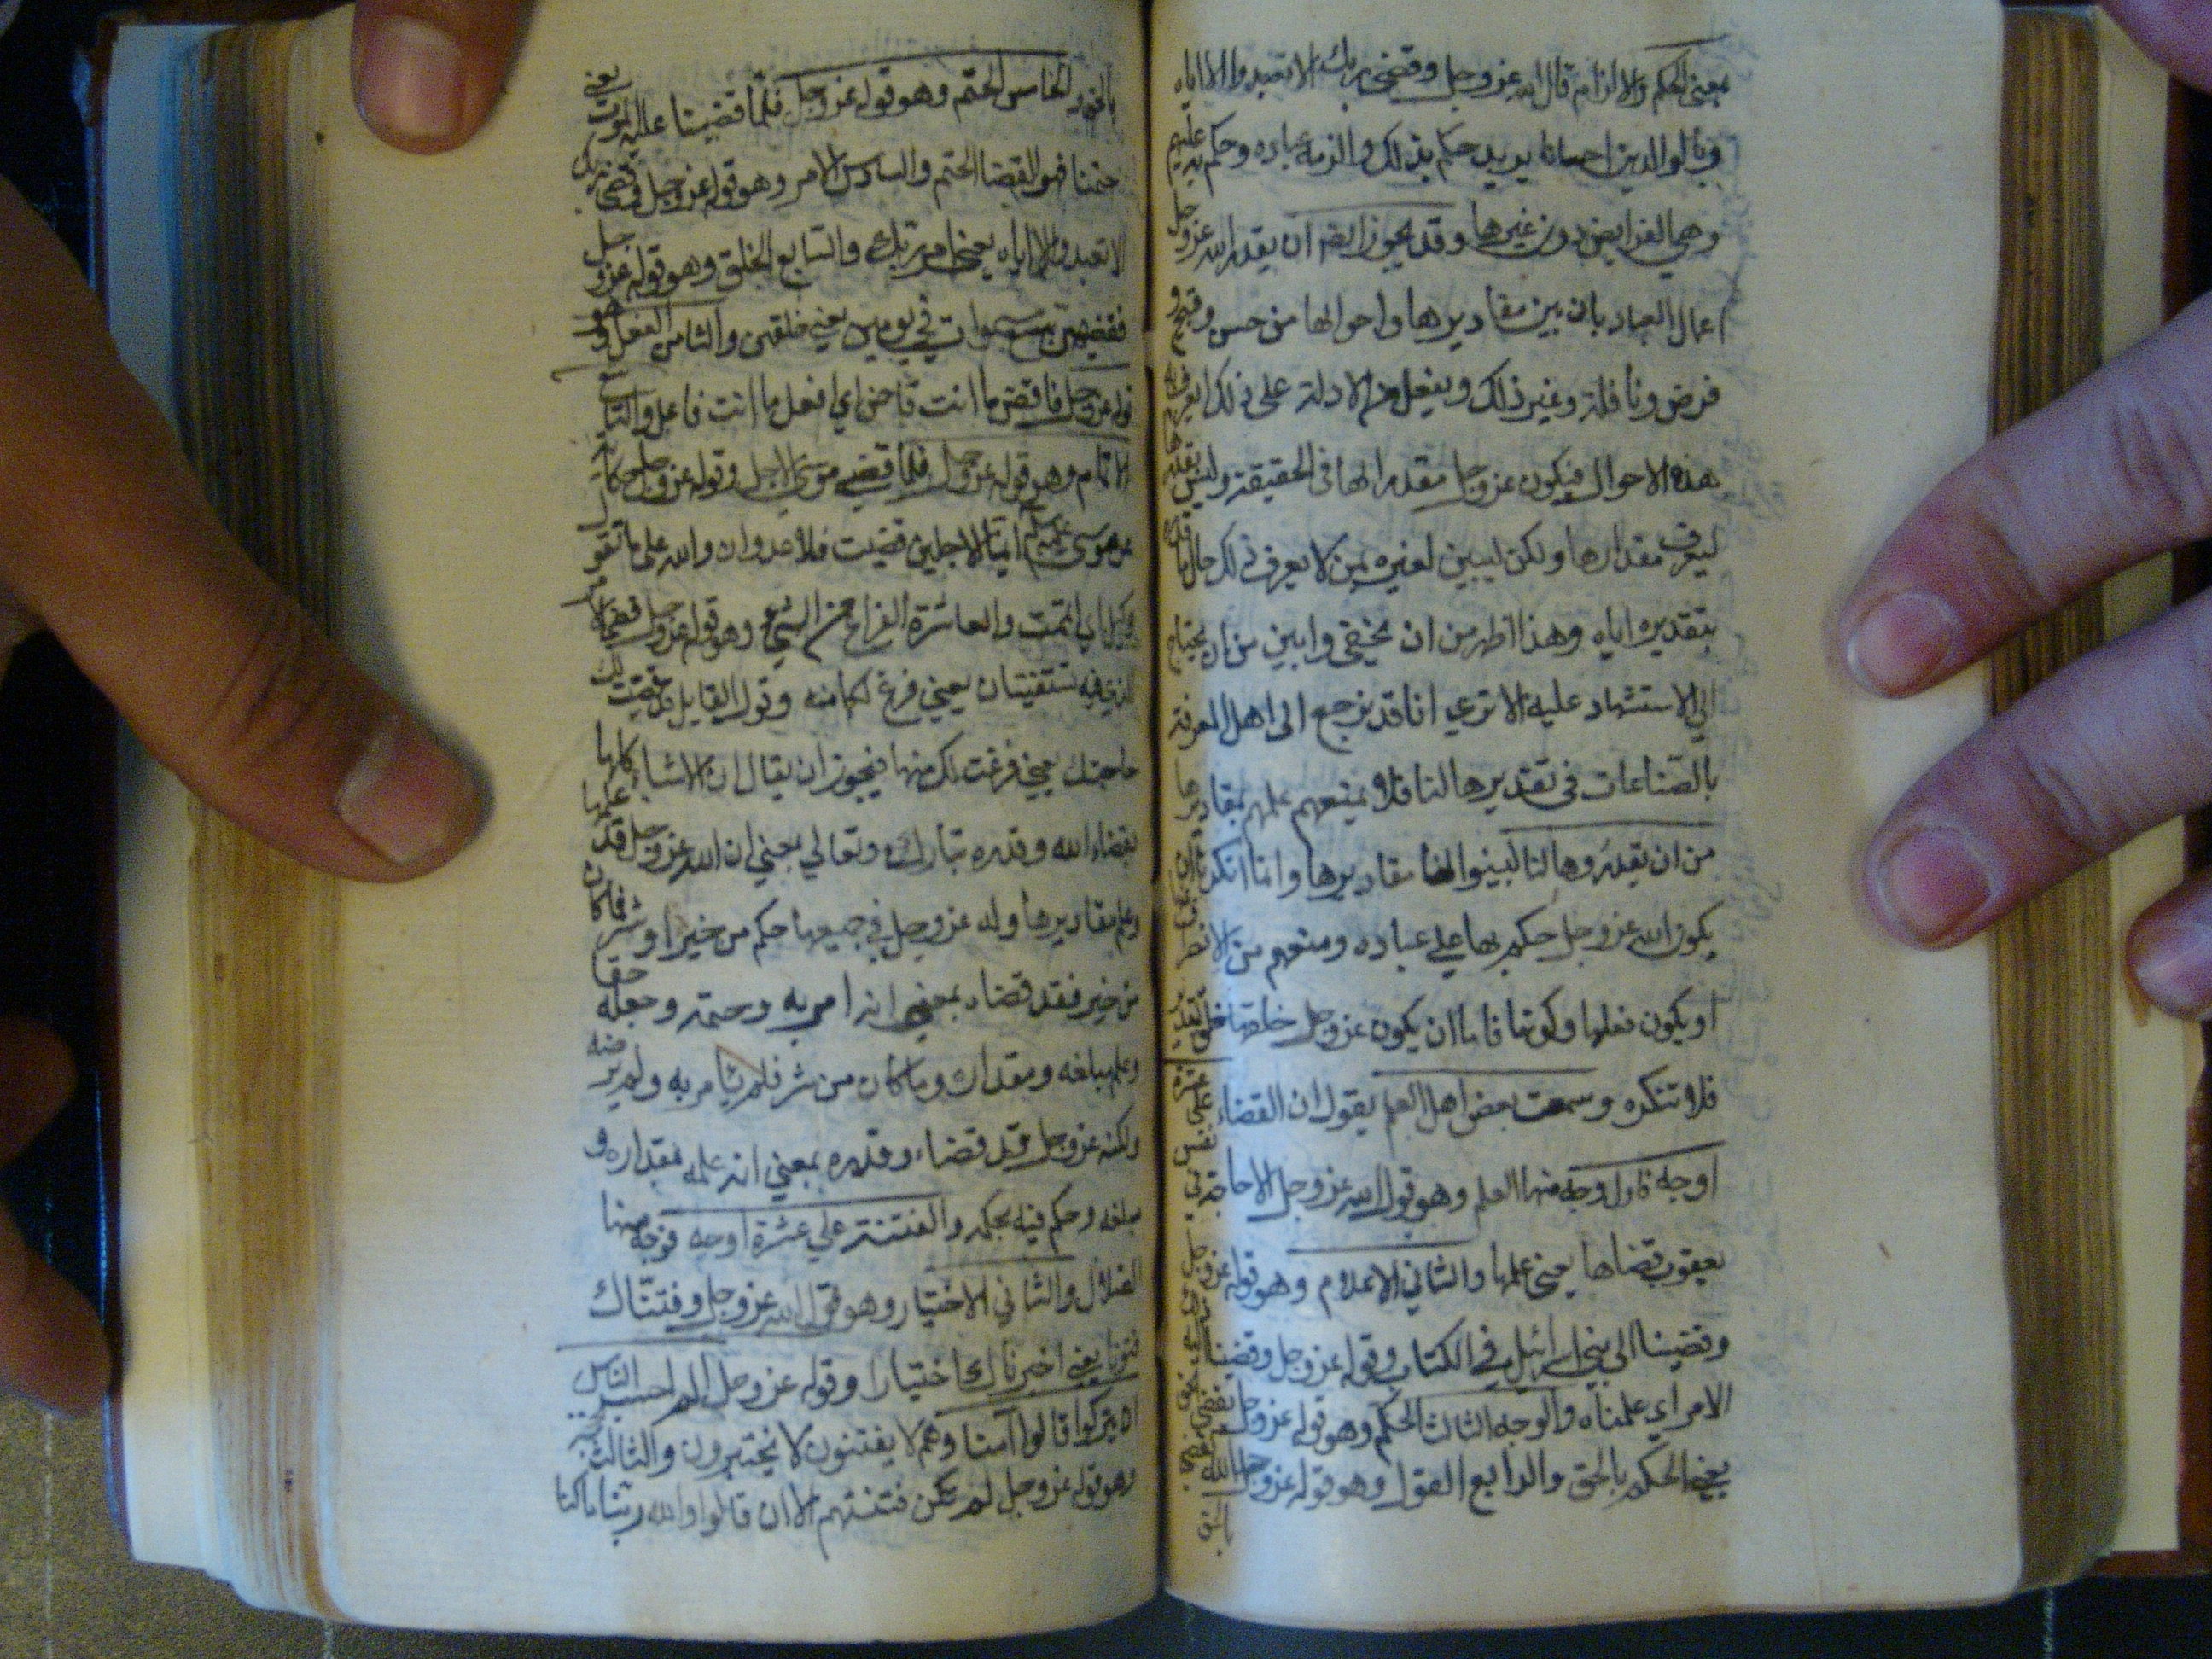 بمعنى الحكم والالزام قال الله عزوجل وقضى ربك الا تعبدوا الا اياه
وبالوالدين احسانا يريد حكم بذلك والزمه عباده وحكم به عليهم
وهي الفرايض دون غيرها وقد يجوز ايضا ان يقدر الله عزوجل
اعمال العباد بان يبين مقاديرها واحوالها من حسن وقبح و
فرض ونافلة وغير ذلك ويفعل من الادلة على ذلك ما يعرف به
هذه الاحوال فيكون عزوجل مقدرا لها في الحقيقة وليس يقدرها
ليعرف مقدارها ولكن ليبين لغيره ممن لا يعرف ذلك حال ما قدره
بتقديره اياه وهذا اظهر من ان يخفى وابين من ان يحتاج
الى الاستشهاد عليه الا ترى انا قد نرجع الى اهل المعرفة
بالصناعات في تقديرها لنا فلا يمنعهم علمهم بمقاديرها
من ان يقدروها لنا ليبينوا لنا مقاديرها وانما انكرنا ان
يكون الله عزوجل حكم بها على عباده ومنعهم من الانصراف عنها
او يكون فعلها وكونها فاما ان يكون عزوجل خلقها خلق تقدير
فلا ننكره وسمعت بعض اهل العلم يقول ان القضاء على عشرة
اوجه فاول وجه منها العلم وهو قول الله عزوجل الا حاجة في نفس
يعقوب قضاها يعني علمها والثاني الاعلام وهو قوله عزوجل
وقضينا الى بني اسرائيل في الكتاب وقوله عزوجل وقضينا اليه ذلك
الامر اي علمناه والوجه الثالث الحكم وهو قوله عزوجل يقضي
يعني الحكم بالحق والرابع القول وهو قوله عزوجل والله يقضي
بالحق
بالحق والخامس الحتم وهو قوله عزوجل فلما قضينا عليه الموت يعني
حتمنا فهو القضا الحتم والسادس الامر وهو قوله عزوجل وقضى ربك
الا تعبدوا الا اياه يعني امر ربك والسابع الخلق وهو قوله عزوجل
فقضيهن سبع سموات في يومين يعني خلقهن والثامن الفعل وهو
قوله عزوجل فاقض ما انت قاض اي افعل ما انت فاعل والتاسع
الاتمام وهو قوله عزوجل فلما قضى موسى الاجل وقوله عزوجل حكاية
عن موسى ايما الاجلين قضيت فلا عدوان والله على ما نقول
وكيل اي اتممت والعاشرة الفراغ من الشيء وهو قوله عزوجل قضي الامر
الذي فيه تستفتيان يعني فرغ لكما منه وقول القايل قد قضيت لك
حاجتك يعني فرغت لك منها فيجوز ان يقال ان الاشياء كلها
بقضاء الله وقدره تبارك وتعالى بمعنى ان الله عزوجل قد علمها
وعلم مقاديرها وله عزوجل في جميعها حكم من خير او شر فما كان
من خير فقد قضاه بمعنى انه امر به وحتمه وجعله حقا
وعلم مبلغه ومقداره وما كان من شر فلم يأمر به ولم يرضه
ولكنه عزوجل قد قضاه وقدره بمعنى انه علمه بمقداره و
مبلغه وحكم فيه بحكمه والفتنة على عشرة اوجه فوجه منها
الضلال والثاني الاختبار وهو قول الله عزوجل وفتناك
فتونا يعني اختبرناك اختبارا وقوله عزوجل الم احسب الناس
ان يتركوا ان يقولوا آمنا وهم لا يفتنون لا يختبرون والثالث
وهو قوله عزوجل ثم لم تكن فتنتهم الا ان قالوا والله ربنا ما كنا